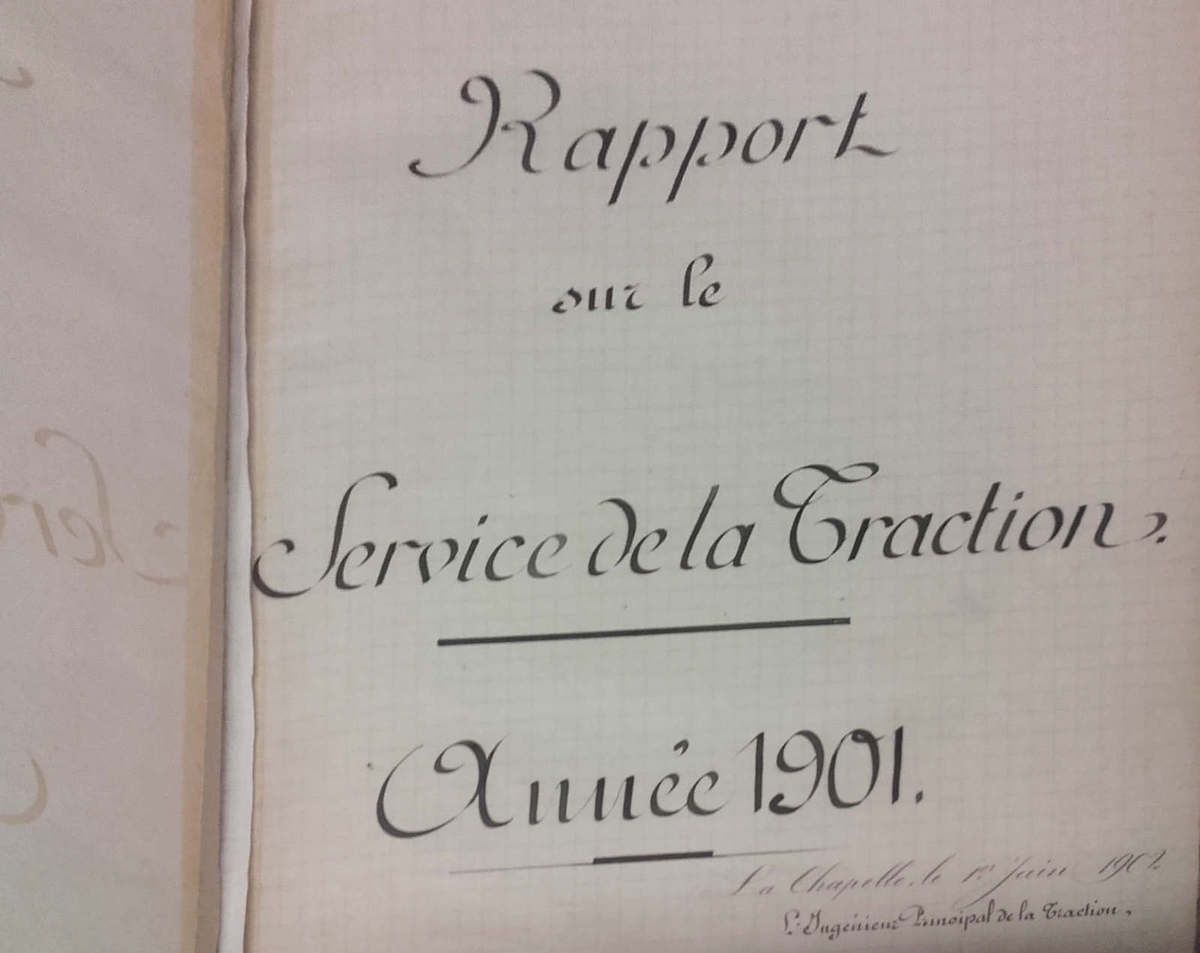 Rapport
sur le
Service de la Traction.
Année 1901.
La Chapelle, le 1er Juin 1902
L'Ingénieur Principal de la Traction,